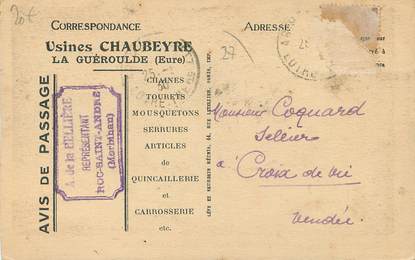 20€
CORRESPONDANCE
Usines CHAUBEYRE
LA GUÉROULDE (Eure)
ADRESSE
27
AVIS DE PASSAGE
A. de la
REPRÉSENTANT
ROC-SAINT-ANDRÉ
(Morbihan)
CHAINES
TOURETS
MOUSQUETONS
SERRURES
ARTICLES
de
QUINCAILLERIE
et
CARROSSERIE
etc.
Monsieur Coquard
Sellier
à Croix de Vie
Vendée